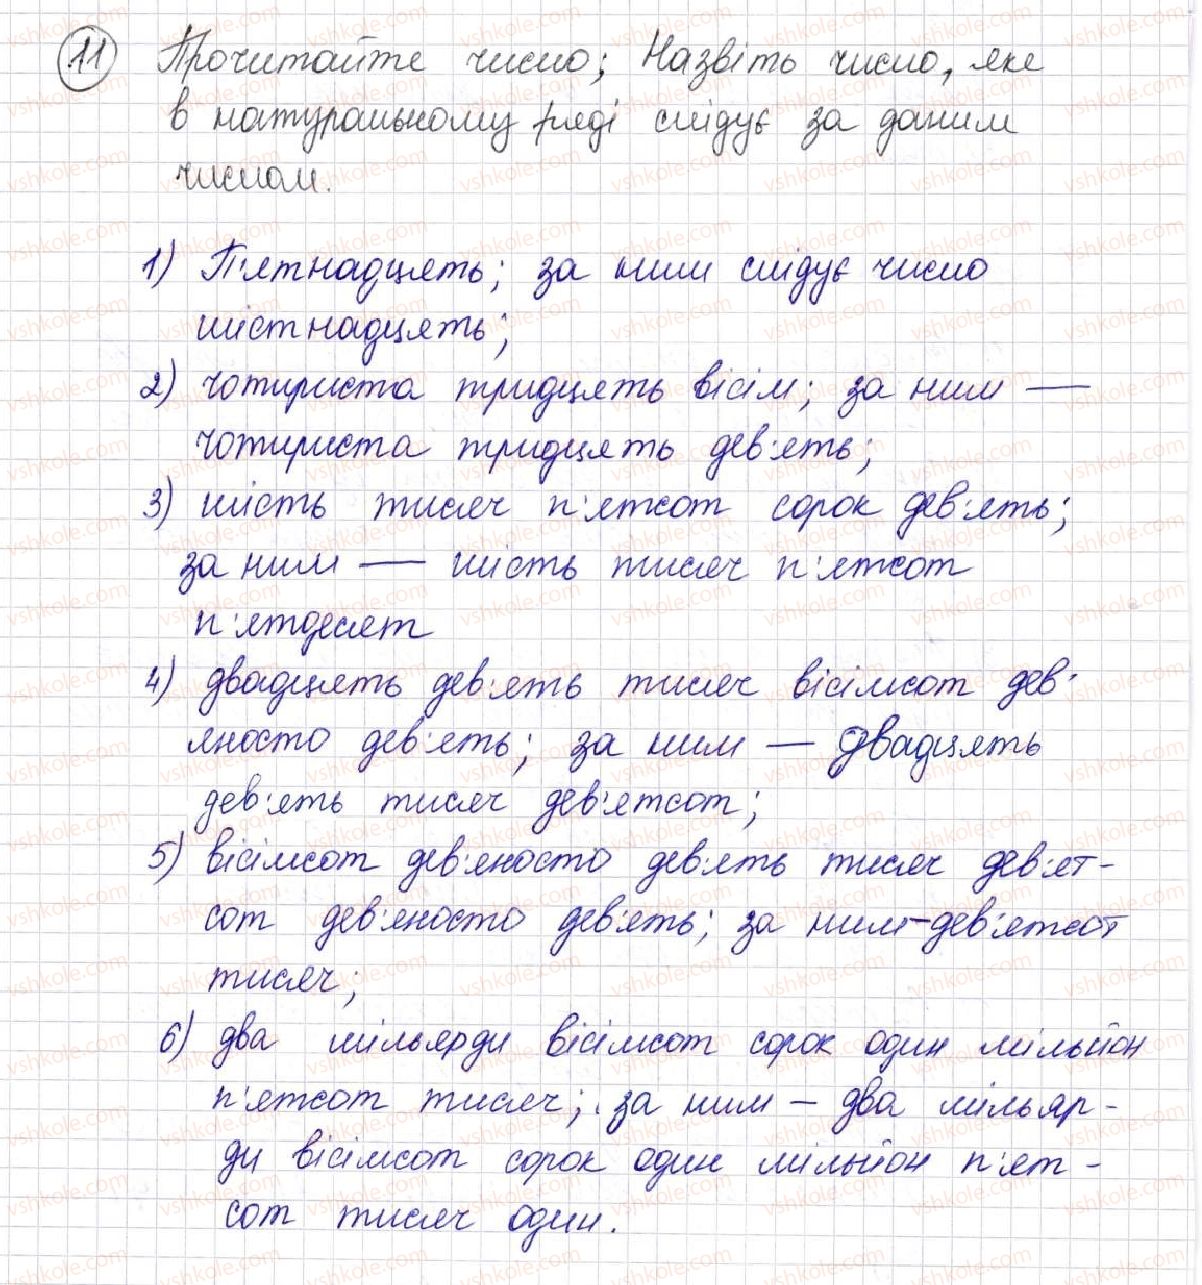 11 Прочитайте число; Назвіть число, яке
в натуральному ряді слідує за даним
числом.
1) П'ятнадцять; за ним слідує число
шістнадцять;
2) чотириста тридцять вісім; за ним —
чотириста тридцять дев'ять;
3) шість тисяч п'ятсот сорок дев'ять;
за ним — шість тисяч п'ятсот
п'ятдесят
4) двадцять дев'ять тисяч вісімсот дев'-
яносто дев'ять; за ним — двадцять
дев'ять тисяч дев'ятсот;
5) вісімсот дев'яносто дев'ять тисяч дев'ят-
сот дев'яносто дев'ять; за ним - дев'ятсот
тисяч;
6) два мільярди вісімсот сорок один мільйон
п'ятсот тисяч; за ним – два мільяр-
ди вісімсот сорок один мільйон п'ят-
сот тисяч один.